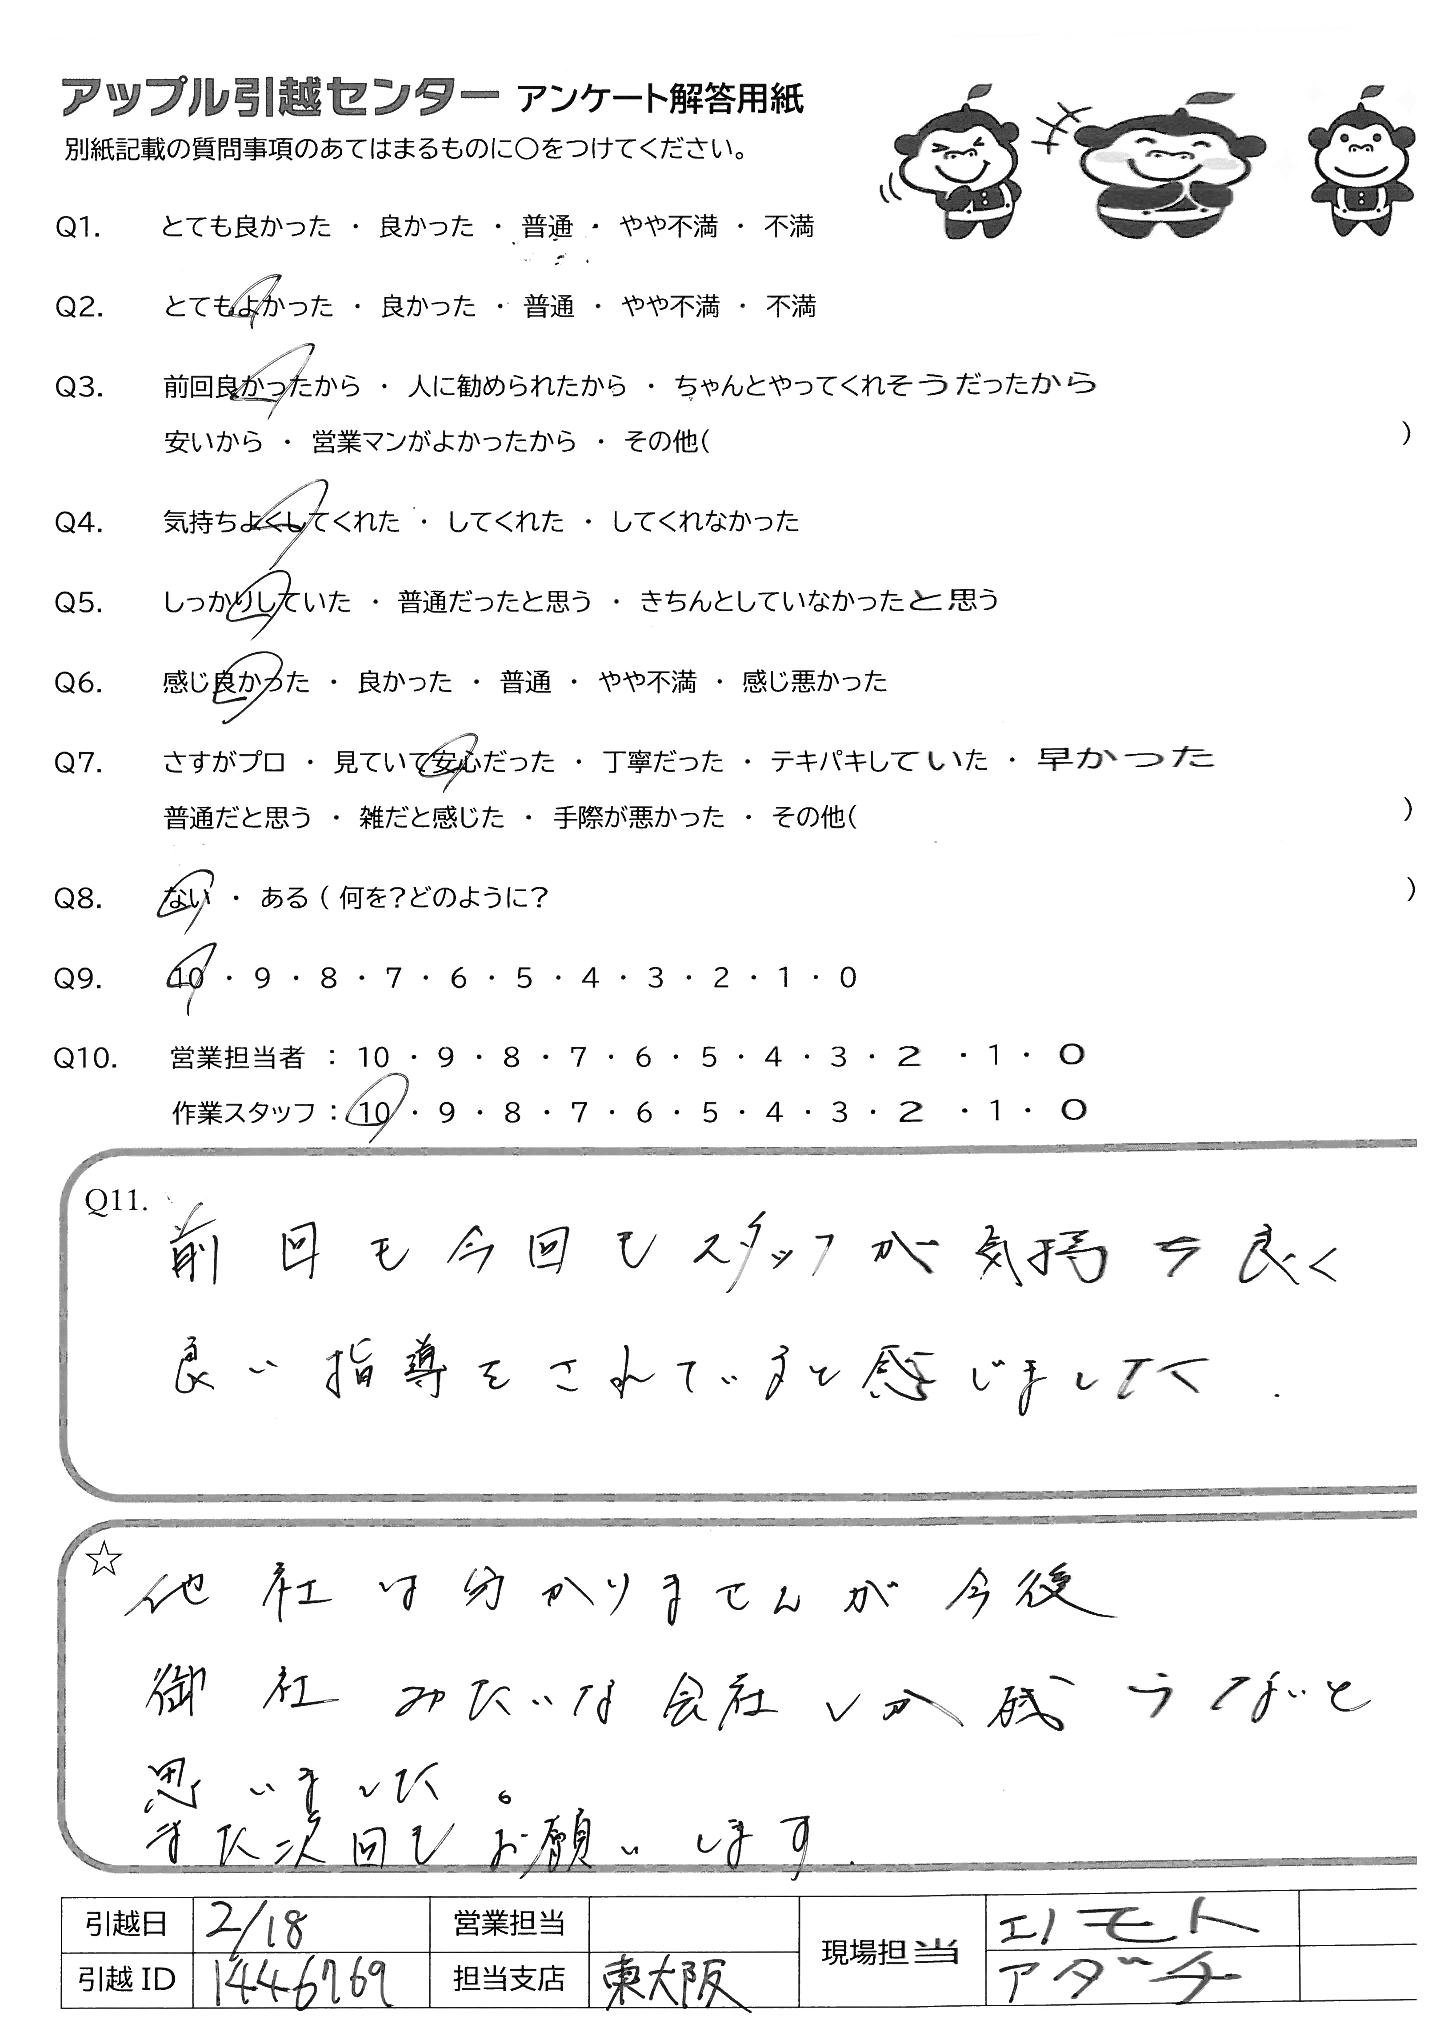 アップル引越センター アンケート解答用紙
別紙記載の質問事項のあてはまるものに○をつけてください。
Q1. とても良かった ・ 良かった ・ 普通 ・ やや不満 ・ 不満
Q2. とてもよかった ・ 良かった ・ 普通 ・ やや不満 ・ 不満
Q3. 前回良かったから ・ 人に勧められたから ・ ちゃんとやってくれそうだったから
安いから ・ 営業マンがよかったから ・ その他( )
Q4. 気持ちよくしてくれた ・ してくれた ・ してくれなかった
Q5. しっかりしていた ・ 普通だったと思う ・ きちんとしていなかったと思う
Q6. 感じ良かった ・ 良かった ・ 普通 ・ やや不満 ・ 感じ悪かった
Q7. さすがプロ ・ 見ていて安心だった ・ 丁寧だった ・ テキパキしていた ・ 早かつった
普通だと思う ・ 雑だと感じた ・ 手際が悪かった ・ その他( )
Q8. ない ・ ある ( 何を?どのように? )
Q9. 10 ・ 9 ・ 8 ・ 7 ・ 6 ・ 5 ・ 4 ・ 3 ・ 2 ・ 1 ・ 0
Q10. 営業担当者 : 10 ・ 9 ・ 8 ・ 7 ・ 6 ・ 5 ・ 4 ・ 3 ・ 2 ・ 1 ・ 0
作業スタッフ : 10 ・ 9 ・ 8 ・ 7 ・ 6 ・ 5 ・ 4 ・ 3 ・ 2 ・ 1 ・ 0
Q11.
前回も今回もスタッフが気持ち良く
良い指導をされていると感じました.
☆
他社は分かりませんが今後
御社みたいな会社しか残らないと
思いました。
また次回もお願いします.
引越日 2/18 営業担当 現場担当 エノモト
引越ID 1446769 担当支店 東大阪 アダチ